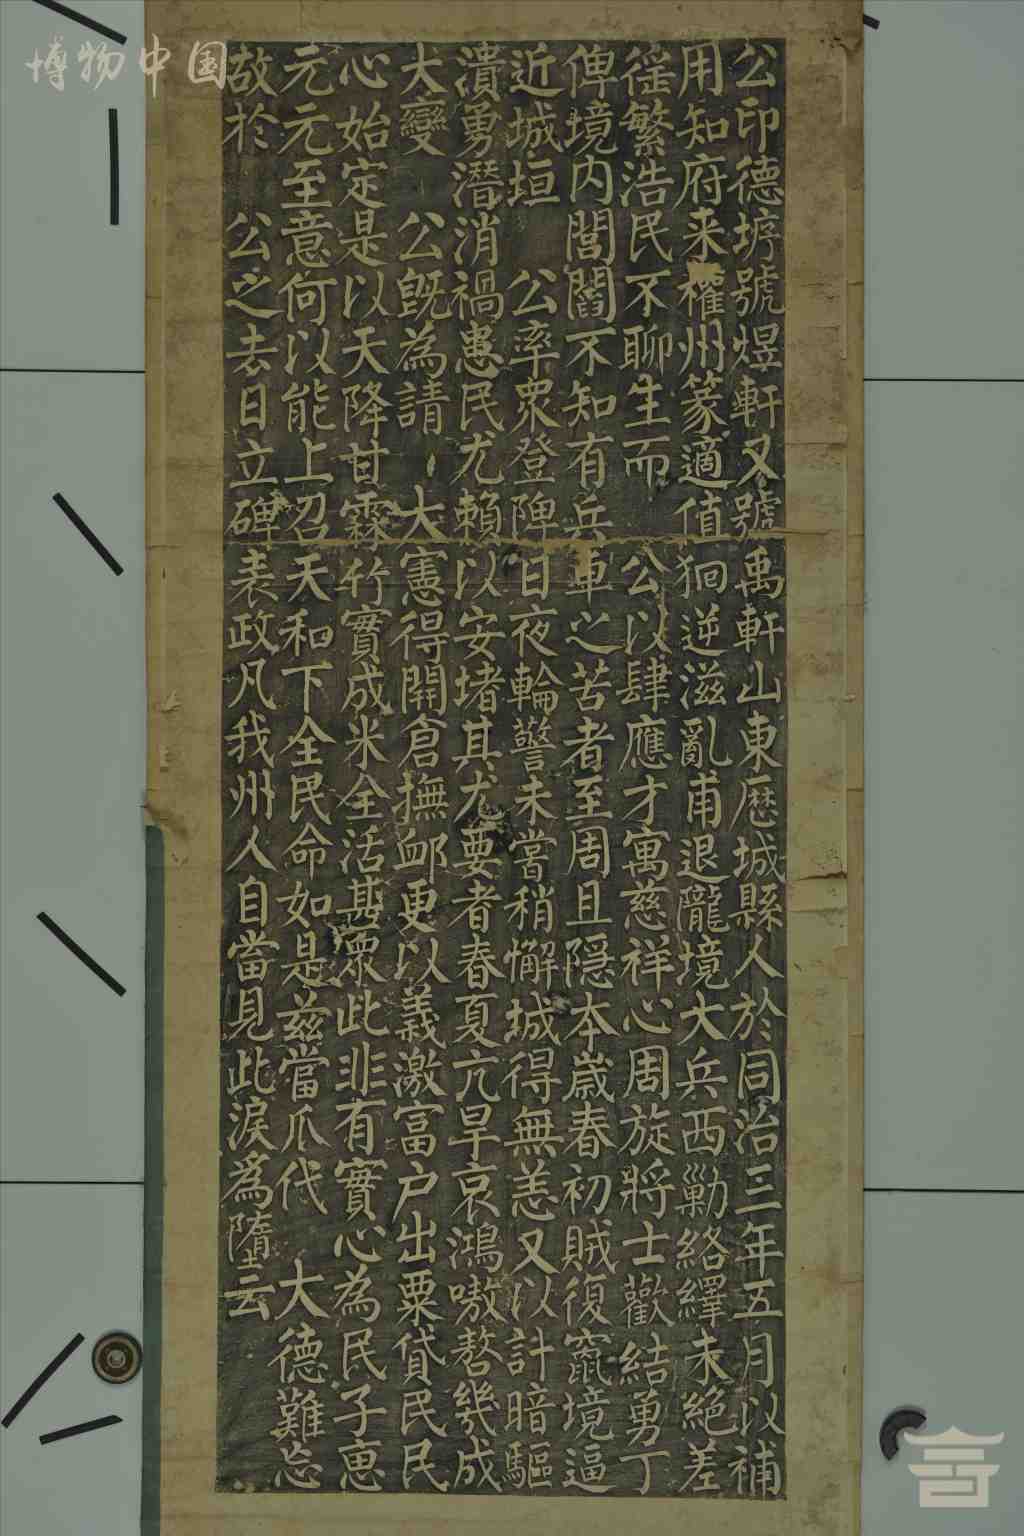 公印德垿號煜軒又號禹軒山東厯城縣人於同治三年五月以補
用知府来權州篆適值狪逆滋亂甫退隴境大兵西勦絡繹未絕差
徭繁浩民不聊生而 公以肆應才寓慈祥心周旋將士歡結勇丁
俾境内閭閻不知有兵車之苦者至周且隱本歲春初賊復竄境逼
近城垣 公率眾登陴日夜輪警未嘗稍懈城得無恙又以計暗驅
潰勇潛消禍患民尤賴以安堵其尤要者春夏亢旱哀鴻嗷嗸幾成
大變 公旣為請 大憲得開倉撫衈更以義激富户出粟貸民民
心始定是以天降甘霖竹實成米全活甚眾此非有實心為民子恵
元元至意何以能上召天和下全民命如是兹當爪代 大德難忘
故於 公之去日立碑表政凡我州人自當見此淚為隋云
博物中国